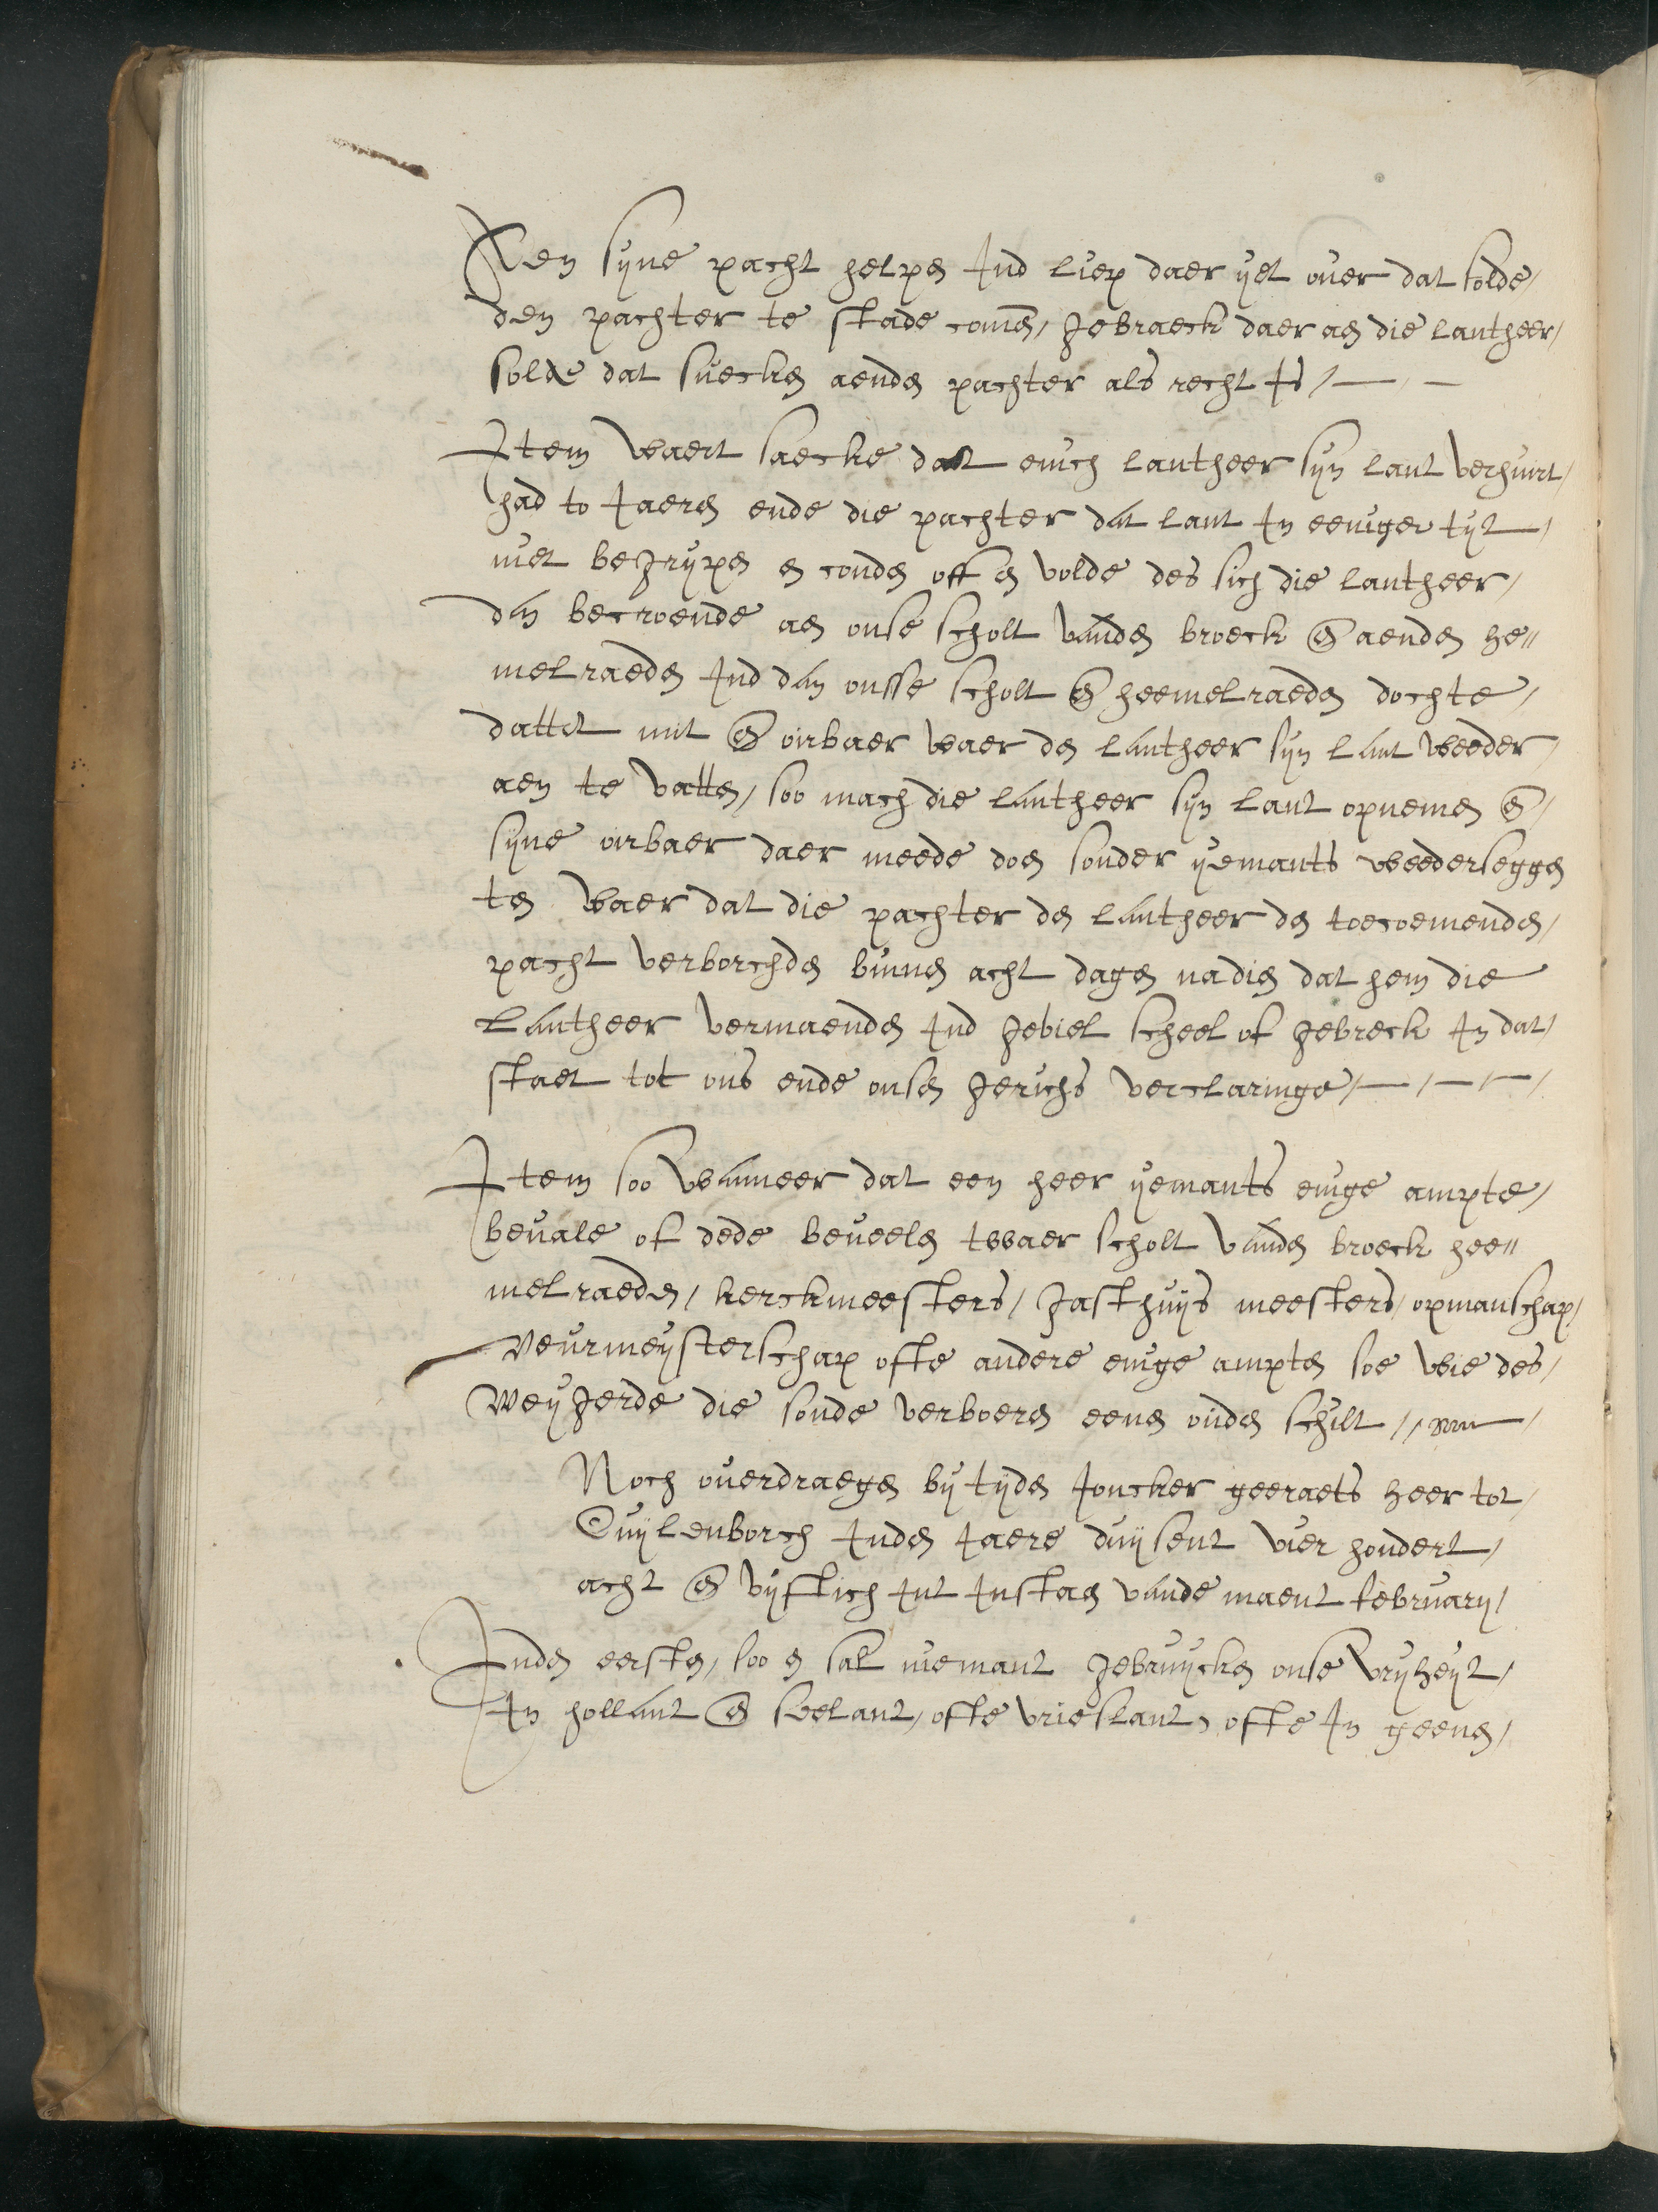 Aen syne pacht helpen Ind liep daer yet ouer dat solde/
den pachter te stade comen/ gebraeck daer aen die lantheer/
solde dat suecken aenden pachter als recht is/
Item waert saecke dat enich lantheer syn lant verhuirt/
had to Jaeren ende die pachter dat lant In eeniger tyt/
niet begrypen en conden off en wolde des sich die lantheer/
dan becroende aen onse scholt vanden broeck en aenden he//
melraeden Ind dan onsse scholt en heemelraeden dochte/
dattet nut en oirbaer waer den lantheer syn lant weeder/
aen te vatten/ soo mach die lantheer syn lant opnemen en/
syne oirbaer daer meede doen sonder yemants weederseggen
ten waer dat die pachter den lantheer den toecoemenden/
pacht verborchden binnen acht dagen nadien dat hem die
lantheer vermaenden Ind geviel scheel of gebreck In dat/
staet tot ons ende onsen gerichs verclaringe/
Item soo wanneer dat een heer yemants enige ampte/
bevale of dede beveelen twaer scholt vanden broeck hee//
melraeden/ kerckmeesters/ gasthuys meesters/ opmanschap/
veurmeysterschap ofte andere enige ampten soe wie des/
weygerde die soude verboeren eenen ouden schilt //
Noch ouerdraegen by tyden Joncker geeraets heer tot/
Cuylenborch Inden Jaere duysent vier hondert/
acht en vyftich Int Instaen vande maent february/
Inden eersten/ soo en sal niemant gebruycken onse vryheyt/
In hollant en seelant/ ofte vrieslant, ofte In geenen/